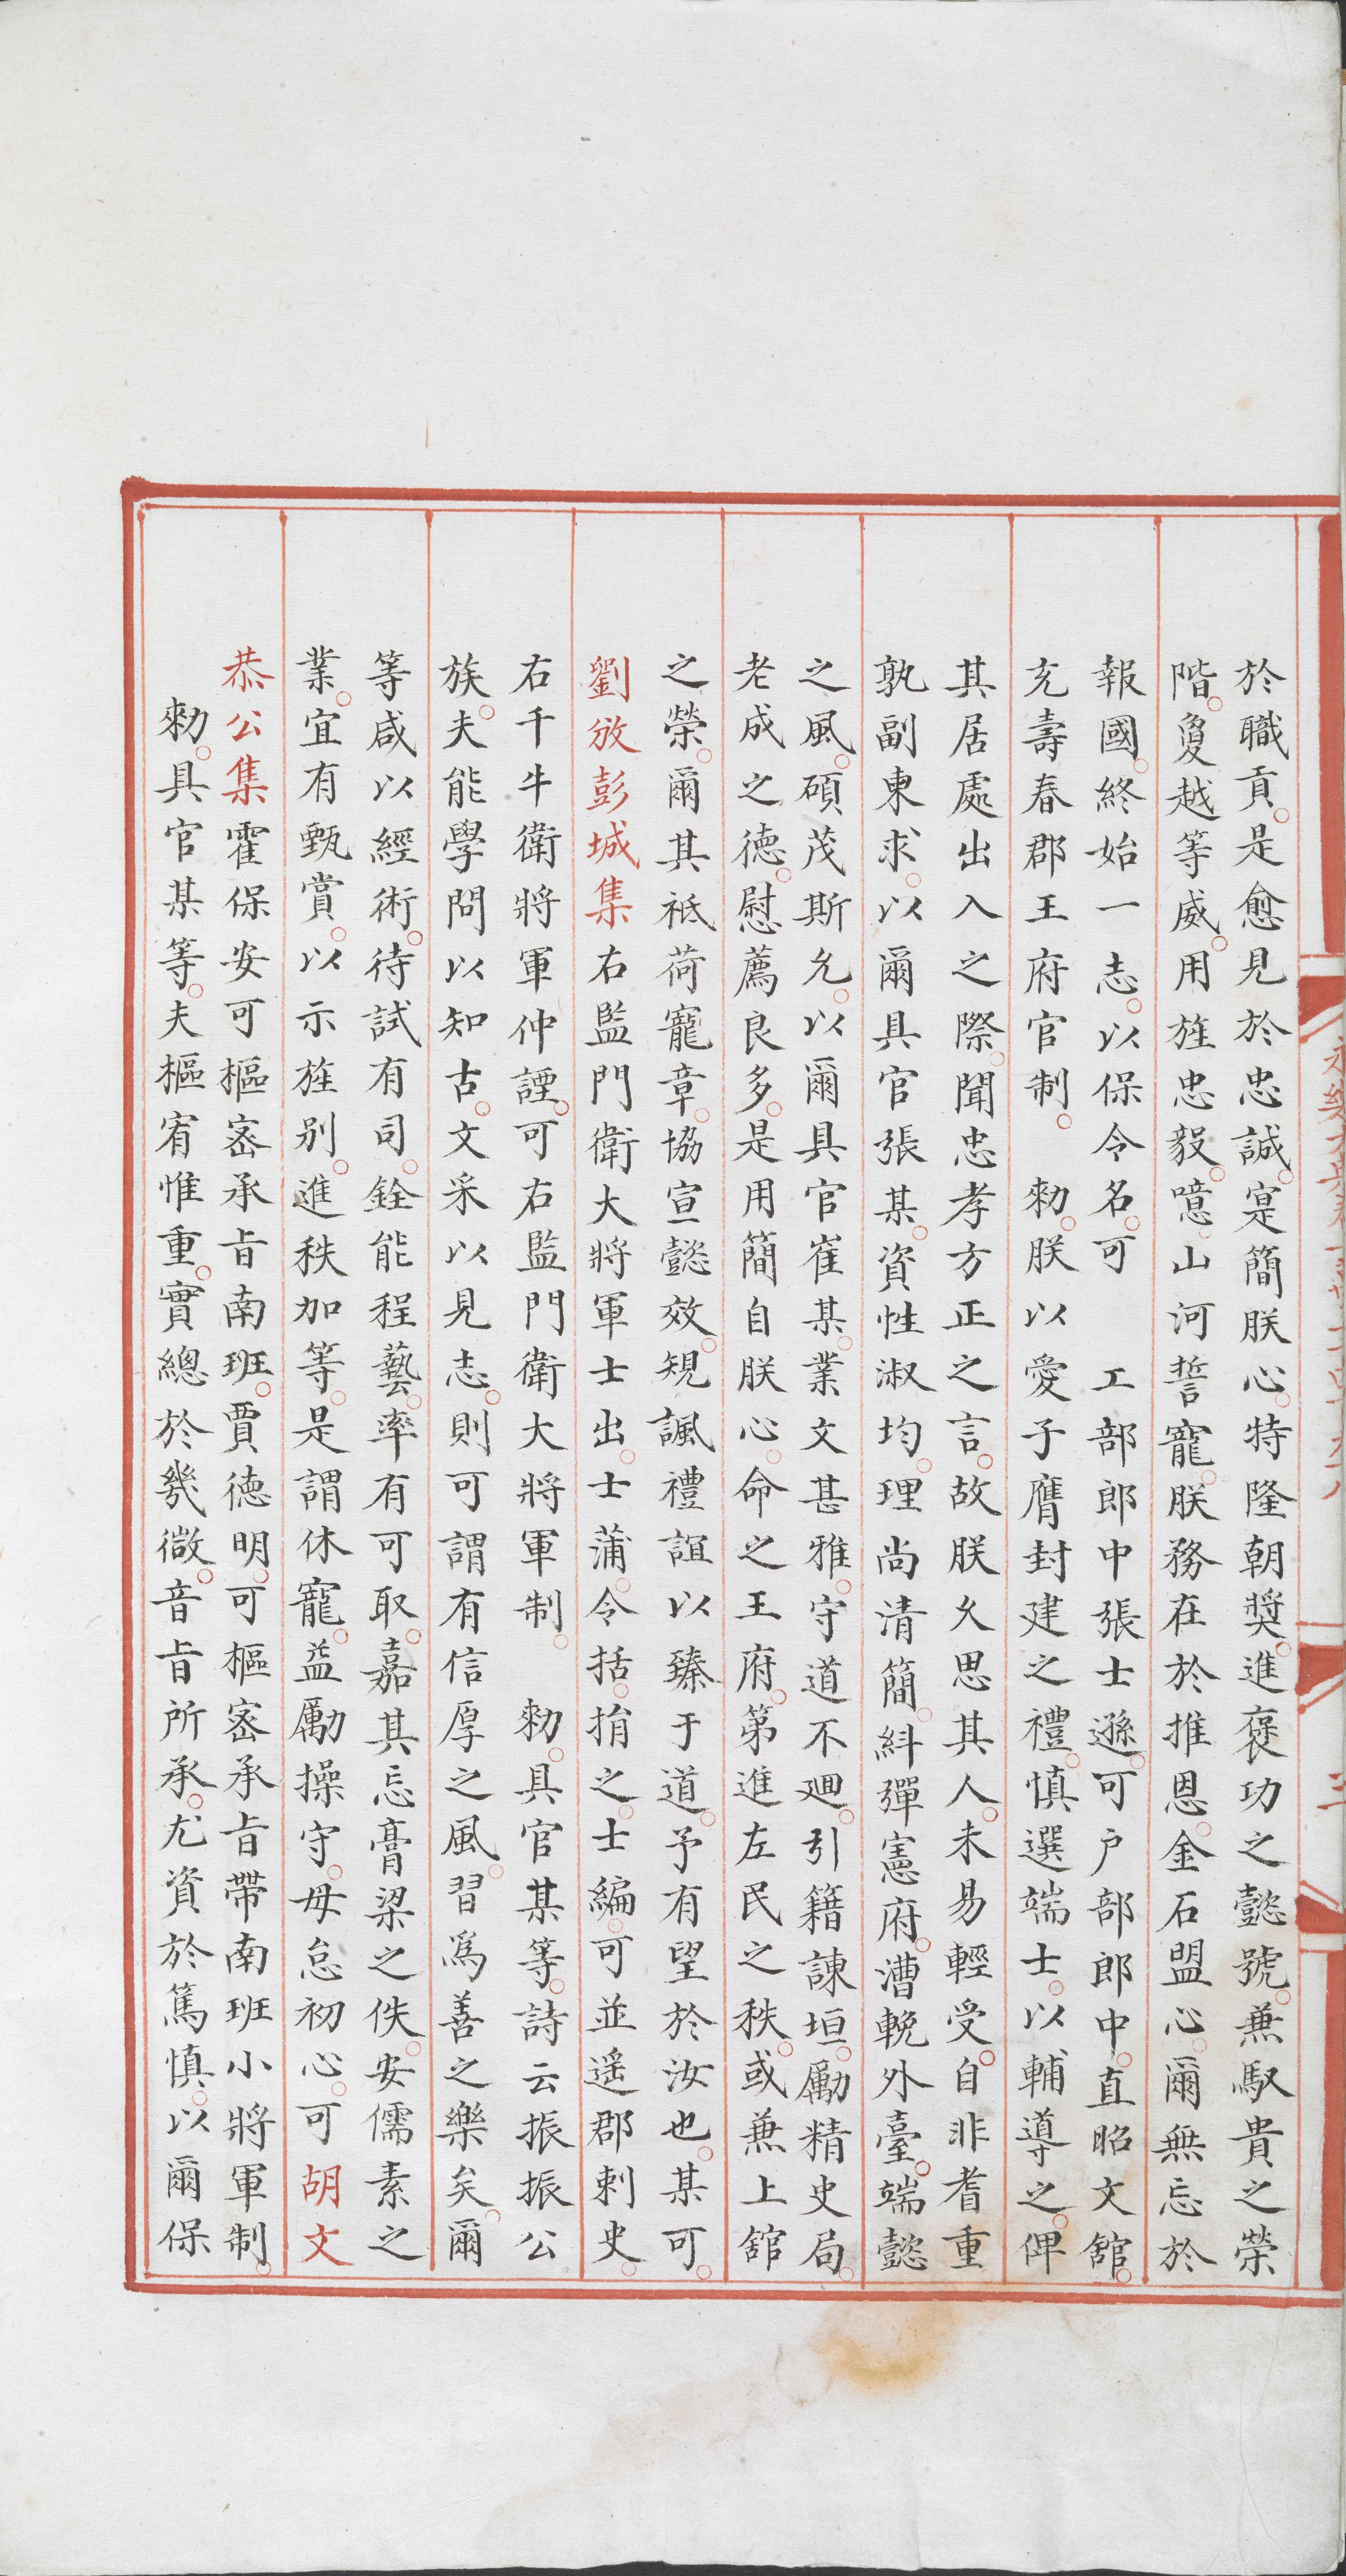 於職貢是愈見於忠誠寔簡朕心特隆朝奬進褒功之懿號兼馭貴之榮
階敻越等威用旌忠毅噫山河誓寵朕務在於推恩金石盟心爾無忘於
報國終始一志以保令名可　工部郎中張士遜可户部郎中直昭文舘
充壽春郡王府官制　勑朕以愛子膺封建之禮慎選端士以輔導之俾
其居處出入之際聞忠孝方正之言故朕久思其人未易輕受自非耆重
孰副東求以爾具官張某資性淑均理尚清簡糾彈憲府漕輓外臺端懿
之風碩茂斯允以爾具官崔某業文甚雅守道不廻引籍諫垣勵精史局
老成之德慰薦良多是用簡自朕心命之王府第進左民之秩或兼上舘
之榮爾其祗荷寵章協宣懿效規諷禮誼以臻于道予有望於汝也某可
劉攽彭城集右監門衛大將軍士出士蒲令括揹之士編可並遥郡刺史
右千牛衛將軍仲諲可右監門衛大將軍制　勑具官某等詩云振振公
族夫能學問以知古文采以見志則可謂有信厚之風習爲善之樂矣爾
等咸以經術待試有司銓能程藝率有可取嘉其忘膏梁之佚安儒素之
業宜有甄賞以示旌别進秩加等是謂休寵益勵操守毋怠初心可胡文
恭公集霍保安可樞宻承旨南班賈德明可樞宻承旨帶南班小將軍制
勑具官某等夫樞宥惟重實總於幾微音旨所承尤資於篤慎以爾保
永樂大典卷
三